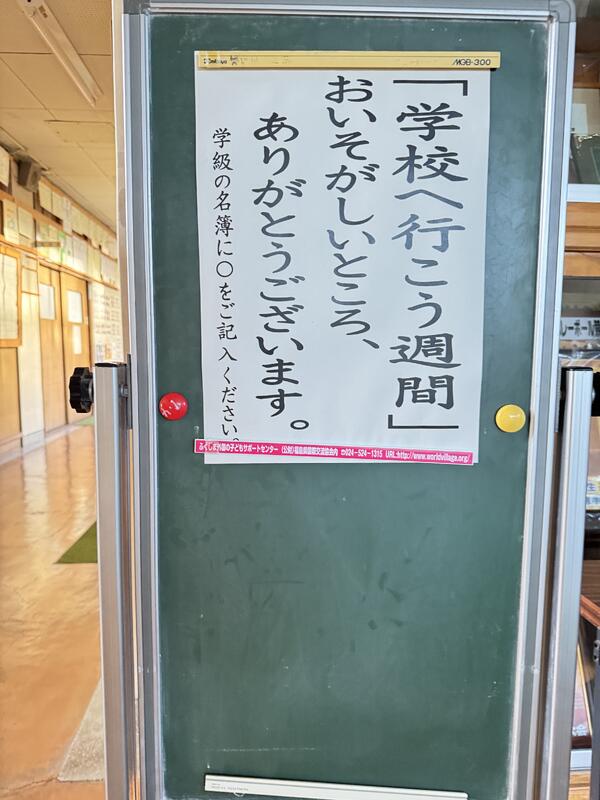 MGB-300
「学校へ行こう週間」
おいそがしいところ、
ありがとうございます。
学級の名簿に〇をご記入ください。
ふくしま外国の子どもサポートセンター (公財)福島県国際交流協会内 ☎024-524-1315 URL:http://www.worldvillage.org/